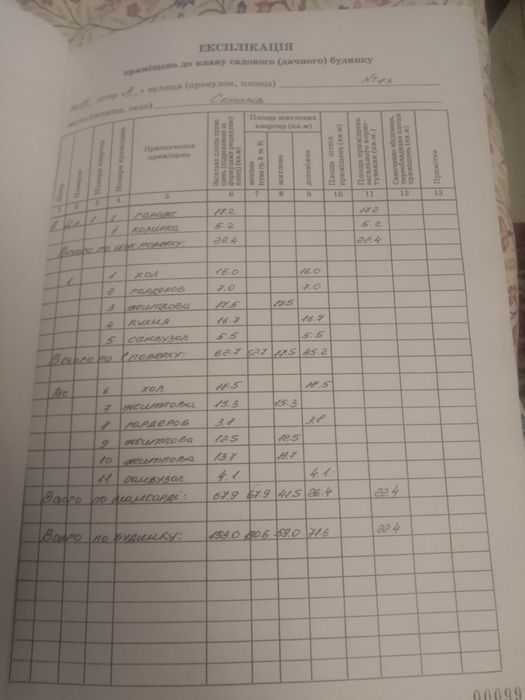 ЕКСПЛІКАЦІЯ
приміщень до плану садового (дачного) будинку
вулиця (провулок, площа) № 93
місто (селище, село)
Поверх
Номери квартир
Номери приміщень
Призначення приміщень
Площа житлових квартир (кв.м)
загальна (сума гр. 8 та 9)
житлова
допоміжна
Площа літніх приміщень (кв.м)
Площа приміщень загального користування (кв.м.)
Самочинно збудована, переобладнана площа приміщень (кв.м)
Примітка
1 2 3 4 5 6 7 8 9 10 11 12 13
1 1 гараж 17.2 17.2
комірка 5.2 5.2
Всього по цок. поверху: 22.4 22.4
1 1 хол 16.0 16.0
2 гардероб 7.0 7.0
3 житлова 17.5 17.5
4 кухня 16.7 16.7
5 санвузол 5.5 5.5
Всього по 1 поверху: 62.7 62.7 17.5 45.2
Мс 6 хол 18.5 18.5
7 житлова 15.3 15.3
8 гардероб 3.8 3.8
9 житлова 12.5 12.5
10 житлова 13.7 13.7
11 санвузол 4.1 4.1
Всього по мансарді: 67.9 67.9 41.5 26.4 22.4
Всього по будинку: 153.0 130.6 59.0 71.6 22.4
00099